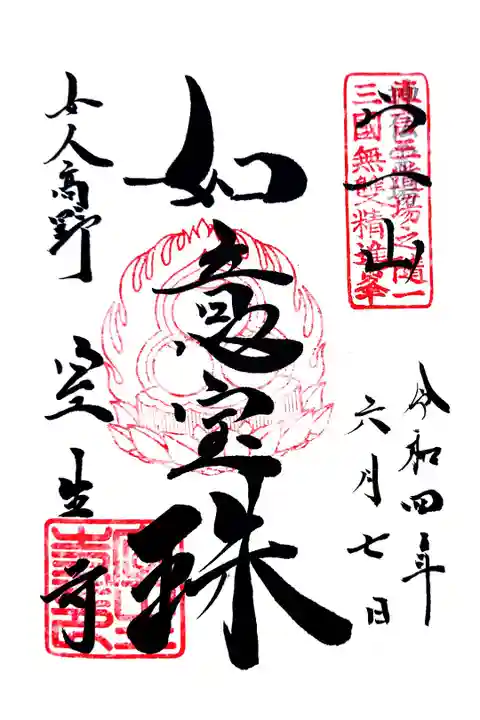 宀一山
三國無雙精進峯
令和四年
六月七日
如意宝珠
女人高野
室生寺